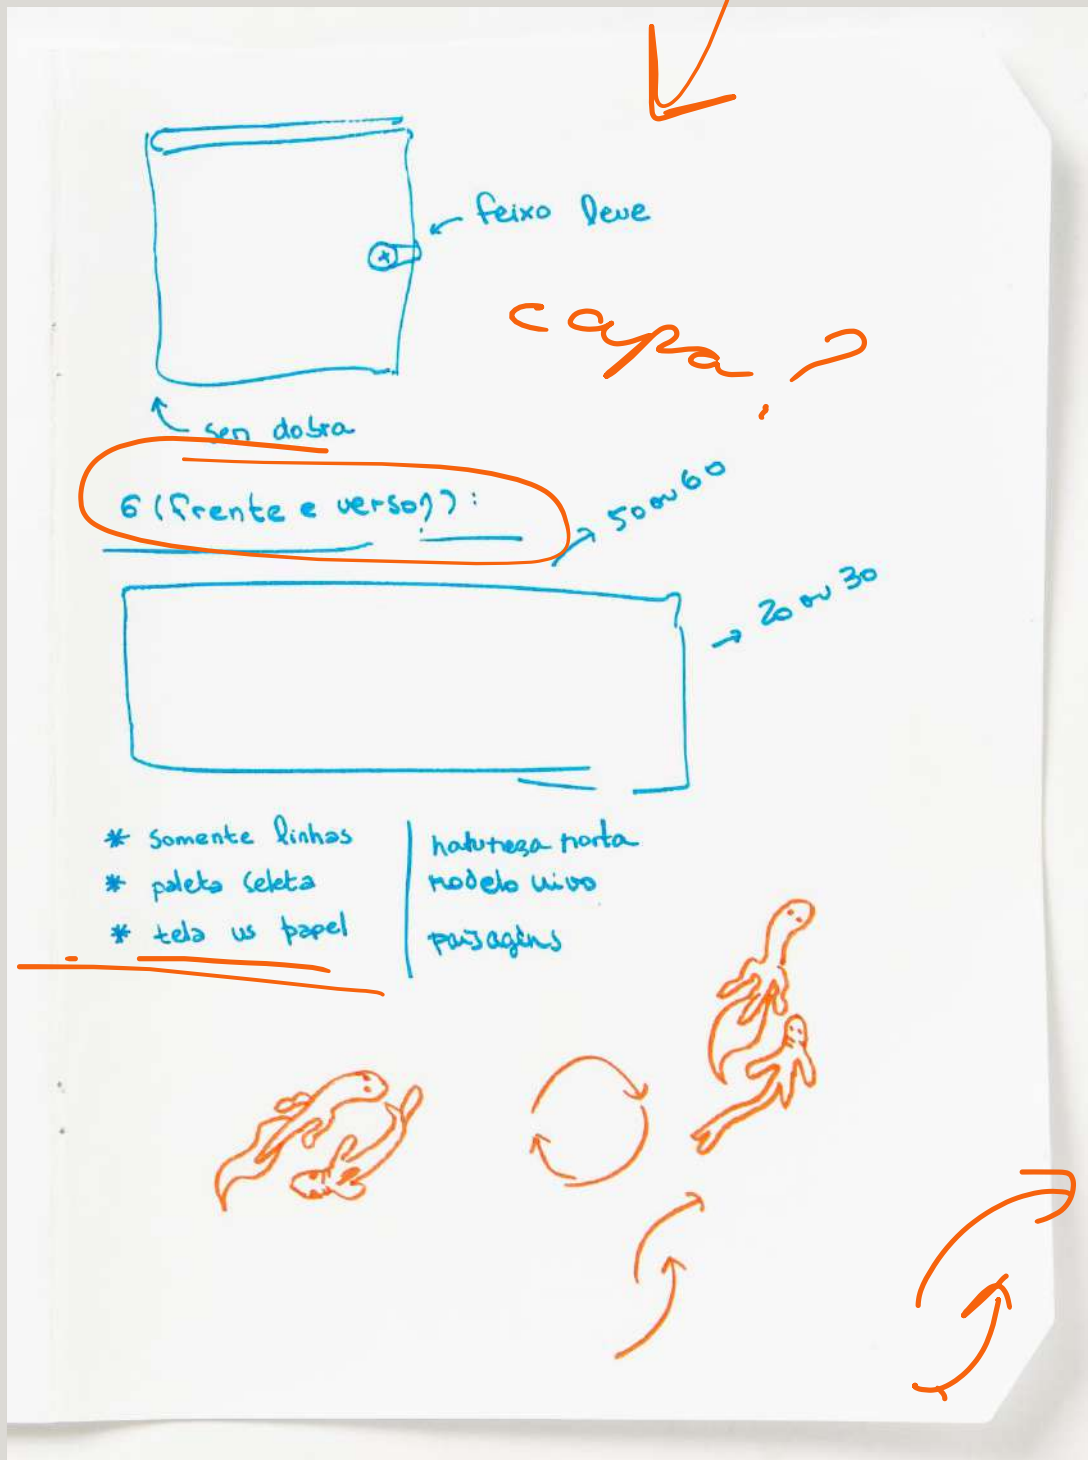 feixo leve
capa?
sem dobra
6 (frente e verso?):
50 ou 60
20 ou 30
* somente linhas
* paleta seleta
* tela vs papel
natureza morta
modelo vivo
paisagens